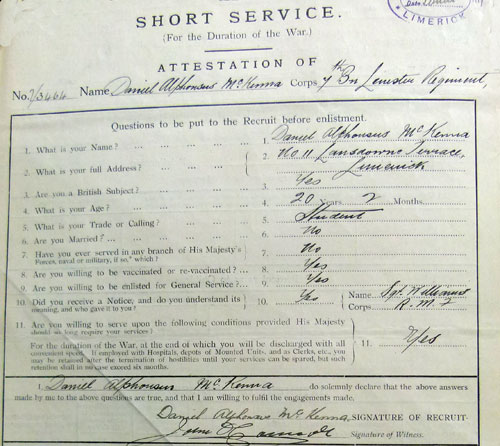 LIMERICK
SHORT SERVICE.
(For the Duration of the War.)
ATTESTATION OF
No. 7/3464 Name Daniel Alphonsus McKenna Corps 7th Bn Leinster Regiment,
Questions to be put to the Recruit before enlistment.
1. What is your Name? ... 1. Daniel Alphonsus McKenna
2. What is your full Address? ... 2. No 11 Lansdowne Terrace,
Limerick
3. Are you a British Subject? ... 3. Yes
4. What is your Age? ... 4. 20 Years 2 Months.
5. What is your Trade or Calling? ... 5. Student
6. Are you Married? ... 6. No
7. Have you ever served in any branch of His Majesty's
Forces, naval or military, if so,* which? 7. No
8. Are you willing to be vaccinated or re-vaccinated? 8. Yes
9. Are you willing to be enlisted for General Service? 9. Yes
10. Did you receive a Notice, and do you understand its
meaning, and who gave it to you? 10. Yes Name Sgt.
Corps
11. Are you willing to serve upon the following conditions provided His Majesty
should so long require your services?
For the duration of the War, at the end of which you will be discharged with all
convenient speed. If employed with Hospitals, depots of Mounted Units, and as Clerks, etc., you
may be retained after the termination of hostilities until your services can be spared, but such
retention shall in no case exceed six months. 11. Yes
I, Daniel Alphonsus McKenna do solemnly declare that the above answers
made by me to the above questions are true, and that I am willing to fulfil the engagements made.
Daniel Alphonsus McKenna SIGNATURE OF RECRUIT
John Signature of Witness.